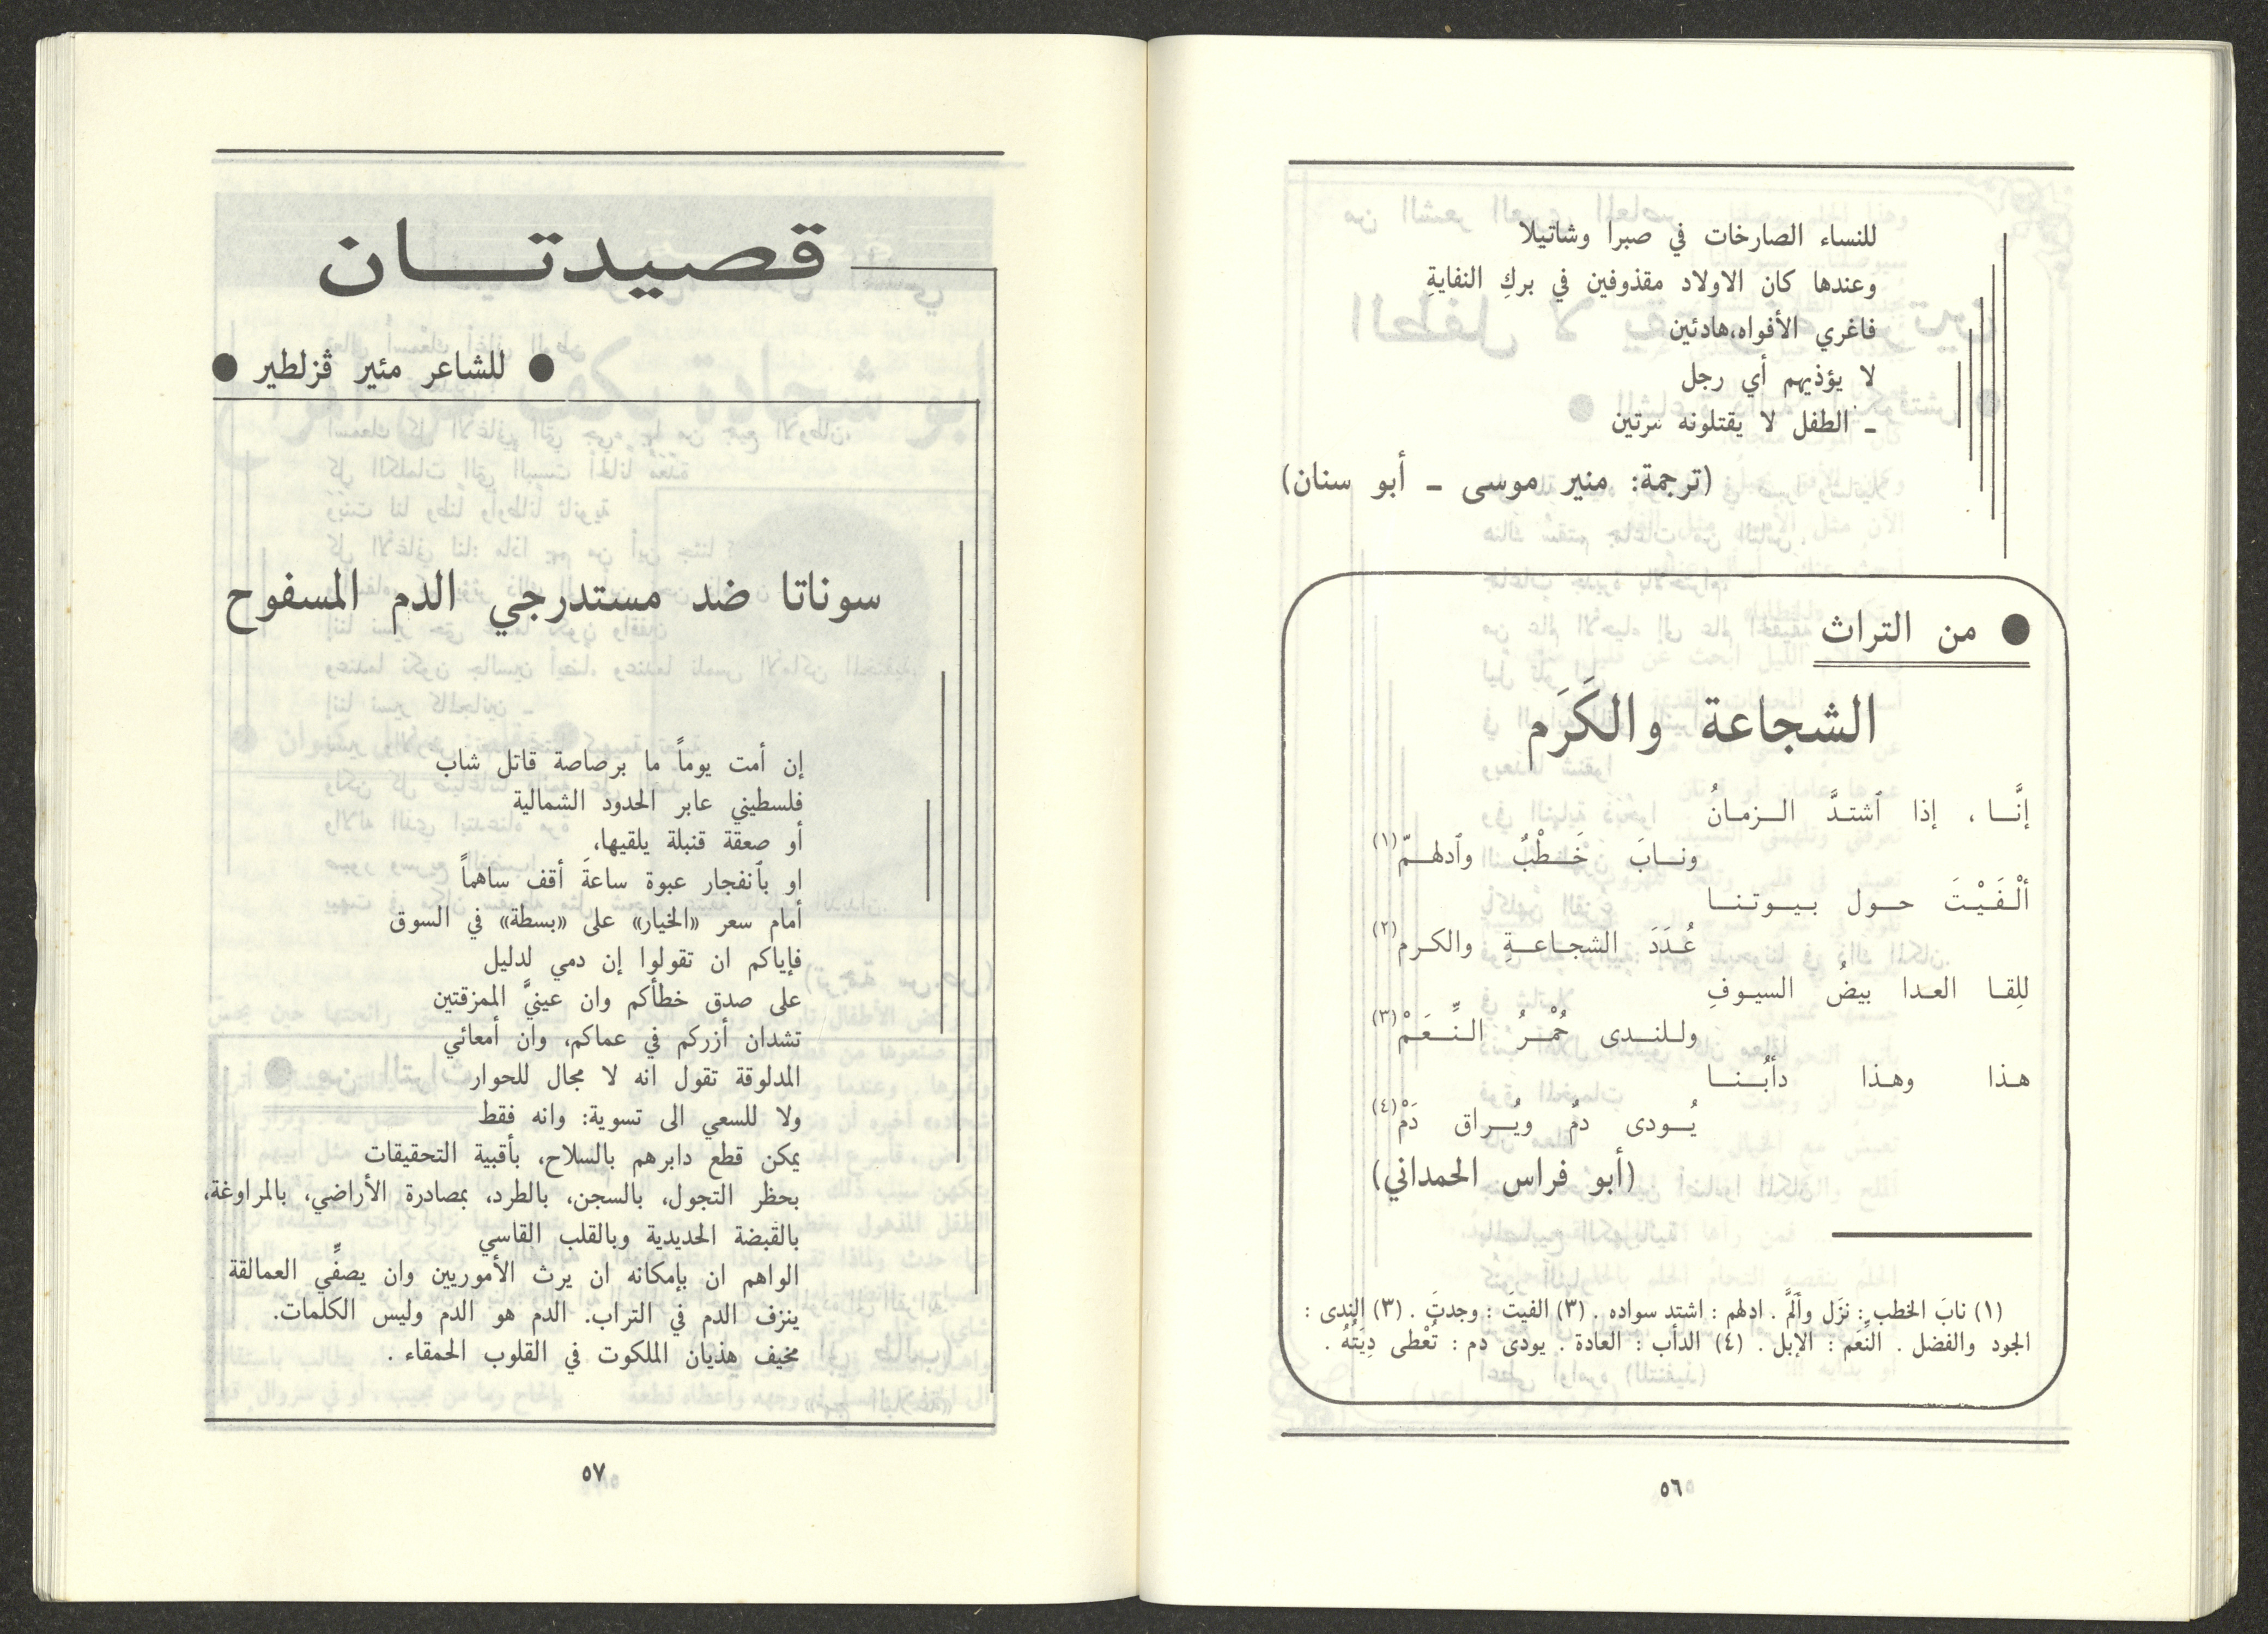 للنساء الصارخات في صبرا وشاتيلا
وعندها كان الاولاد مقذوفين في بركِ النفايةِ
فاغري الأفواه،هادئين
لا يؤذيهم أي رجل
ـ الطفل لا يقتلونه مرتين
(ترجمة: منير موسى ـ أبو سنان)
● من التراث
الشجاعة والكَرَم
إنَّـا ، إذا ٱشتـدَّ الـزمـانُ
ونـابَ خَـطْبٌ وٱدلهـمّ(١)
ألْـفَـيْـتَ حـول بـيـوتـنـا
عُـدَدَ الشجـاعـةِ والكـرم(٢)
لِلِقـا العـدا بيضُ السيـوفِ
ولـلنـدى حُمْـرُ الـنِّـعَـمْ(٣)
هـذا وهـذا دأبُـنـا
يُـودى دمٌ ويُـراق دَمْ(٤)
(أبو فراس الحمداني)
(١) نابَ الخطب : نزَل وألَمَّ . ادلهم : اشتد سواده . (٣) الفيتَ : وجدتَ . (٣) الندى :
الجود والفضل . النِّعَم : الإبل . (٤) الدأب : العادة . يودى دم : تُعْطى دِيَتُهُ .
٥٦
قصيدتــان
● للشاعر مئير ڤزلطير ●
سوناتا ضد مستدرجي الدم المسفوح
إن أمت يوماً ما برصاصة قاتل شاب
فلسطيني عابر الحدود الشمالية
أو صعقة قنبلة يلقيها،
او بٱنفجار عبوة ساعةَ أقف ساهماً
أمام سعر «الخيار» على «بسطة» في السوق
فإياكم ان تقولوا إن دمي لدليل
على صدق خطأكم وان عينيَّ الممزقتين
تشدان أزركم في عماكم، وان أمعائي
المدلوقة تقول انه لا مجال للحوار
ولا للسعي الى تسوية: وانه فقط
يمكن قطع دابرهم بالسلاح، بأقبية التحقيقات
بحظر التجول، بالسجن، بالطرد، بمصادرة الأراضي، بالمراوغة،
بالقبضة الحديدية وبالقلب القاسي
الواهم ان بإمكانه ان يرث الأموريين وان يصفِّي العمالقة
ينزف الدم في التراب. الدم هو الدم وليس الكلمات.
مخيف هذيان الملكوت في القلوب الحمقاء .
٥٧